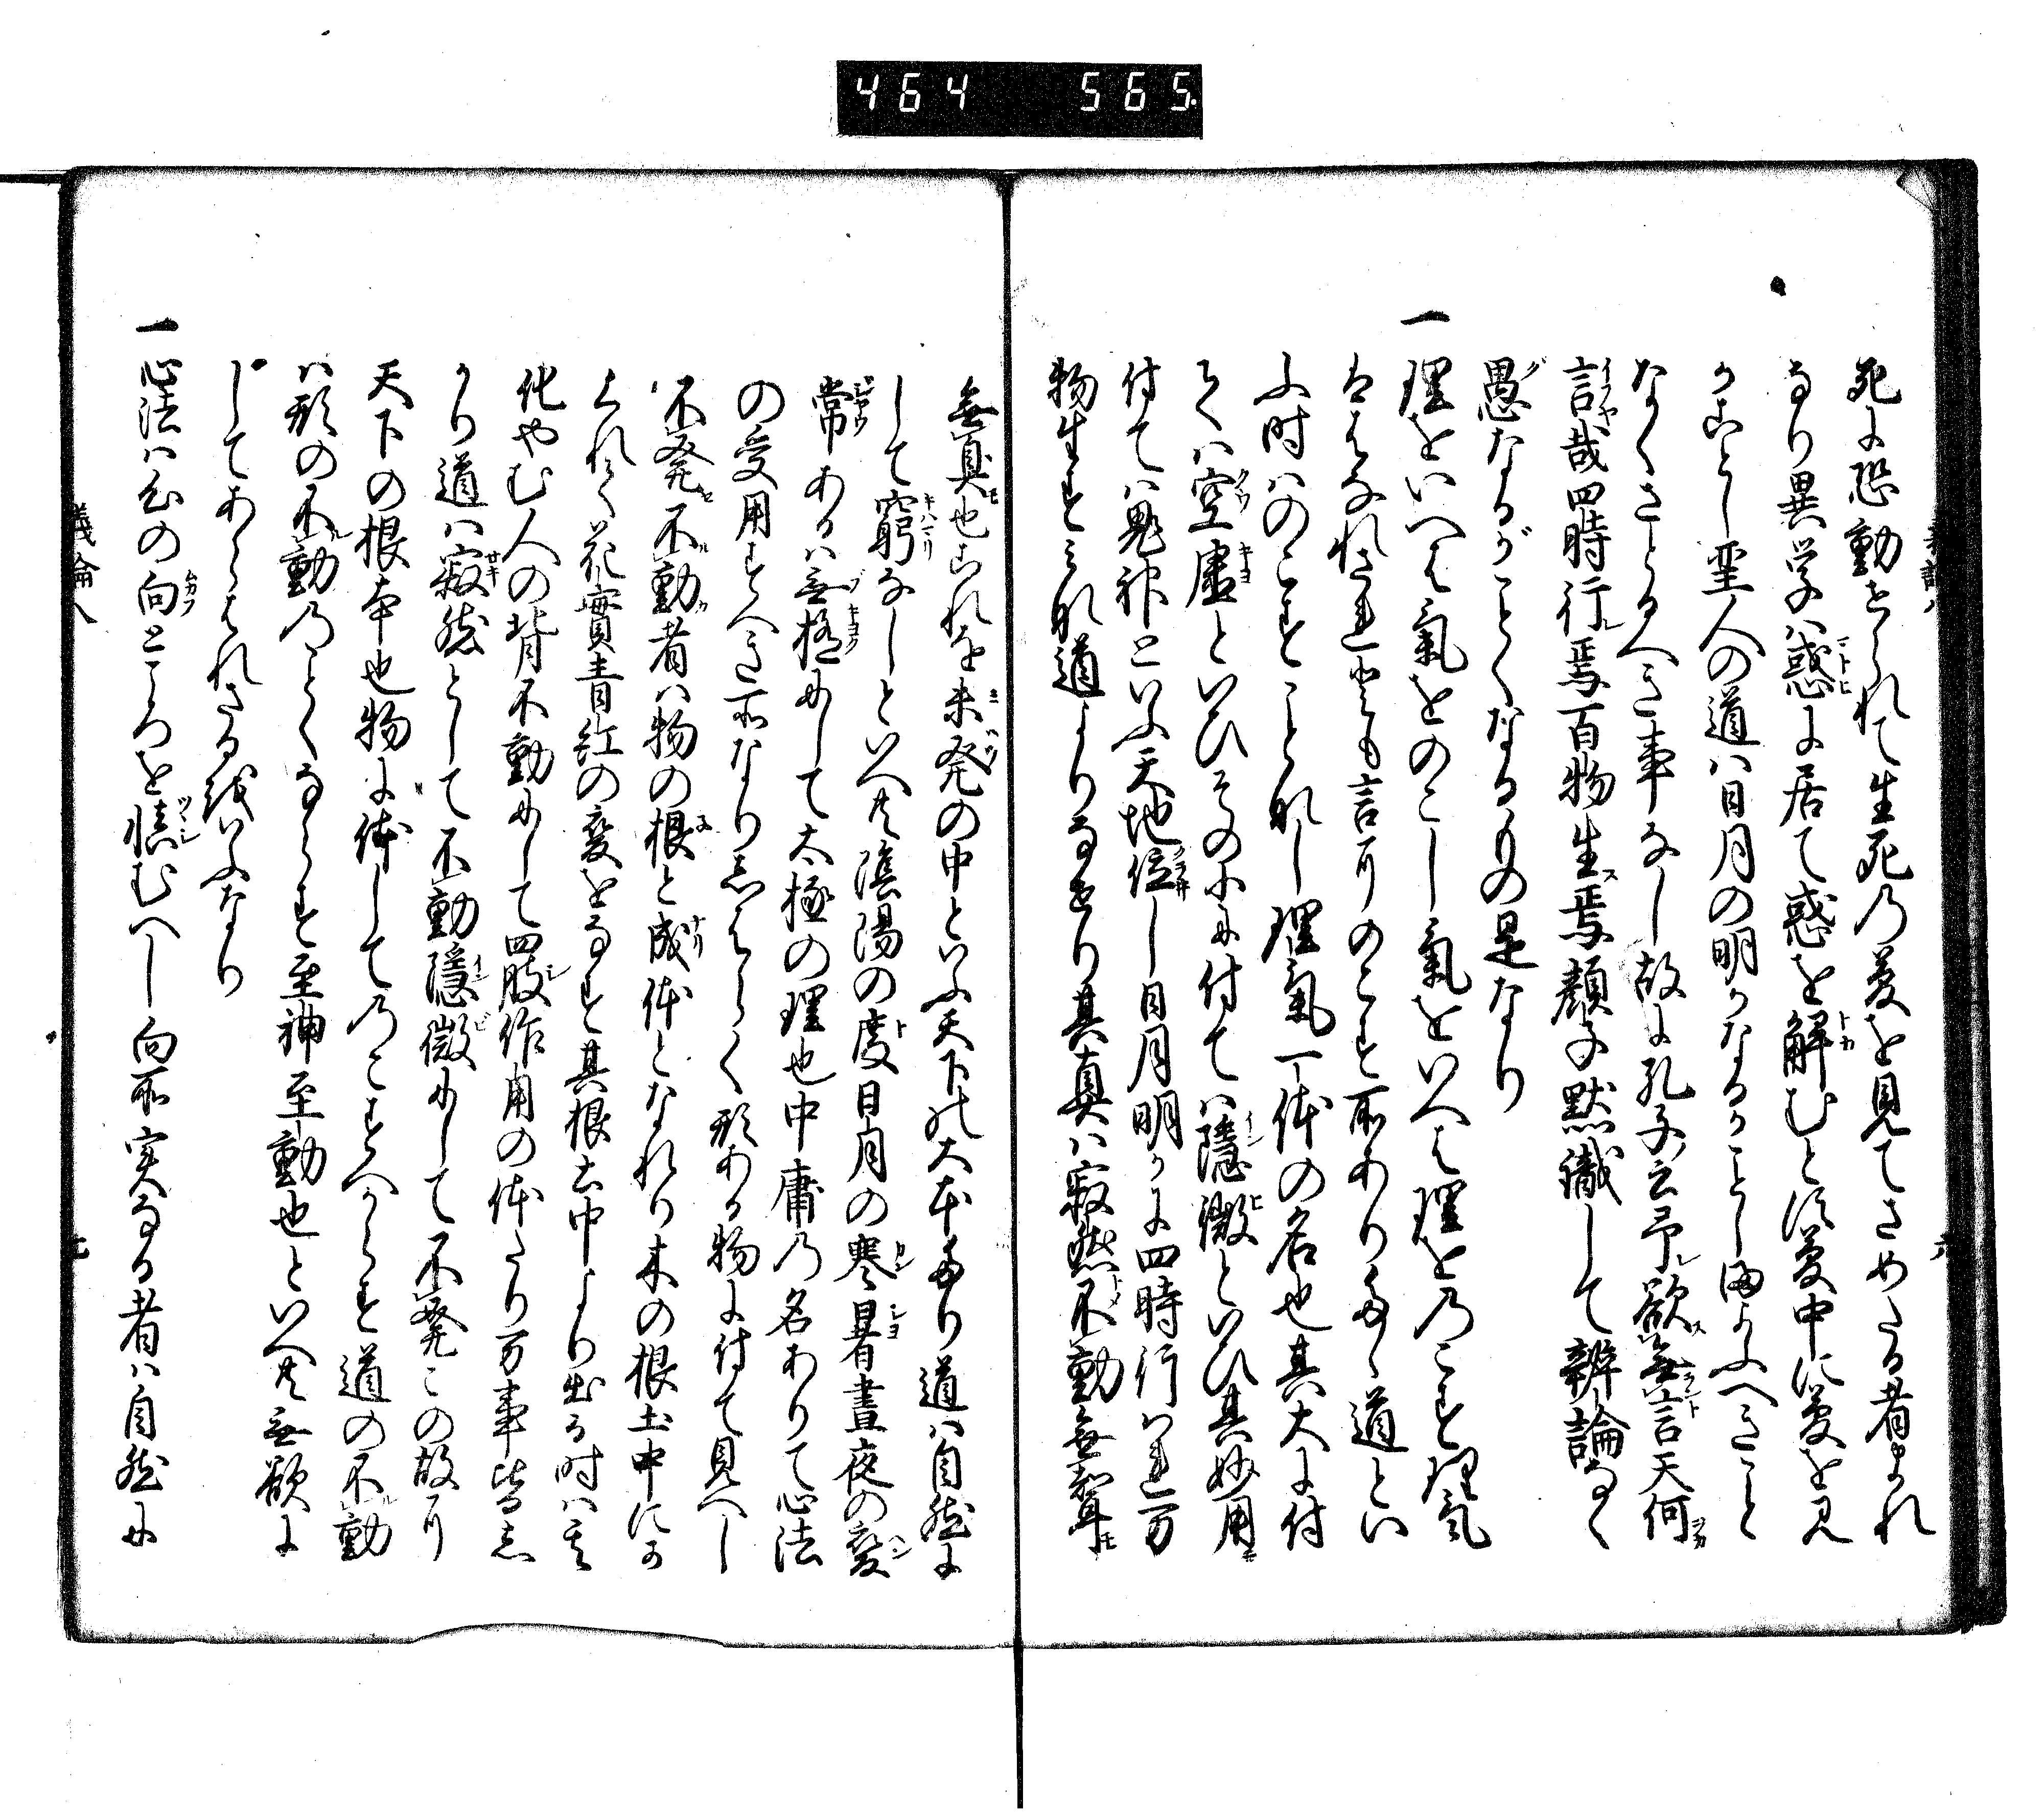 464 565
死に恐動せられて生死乃夢を見てさめたる者まれ
なり異学ハ惑に居て惑を解むとす夢中に夢を見
かことし聖人の道ハ日月の明かなるかことしまよふへきこと
なくさとるへき事なし故に孔子云予欲無言天何
言哉四時行焉百物生焉顔子黙識して辨論なく
愚なるがことくなるもの是なり
一理をいへは氣をのこし氣をいへは理をのこす理気
はなれされとも言にのこす所あり道とい
ふ時ハのこすことなし理氣一体の名也其大に付
てハ空虚といひその小に付てハ隠微といひ其妙用
付てハ鬼神といふ天地位し日月明かに四時行ハれ万
物生することみな道よりなせり其真ハ寂然不動無聲
無臭也これを未発の中といふ天下の大本なり道ハ自然に
して窮なしといへ共陰陽の度日月の寒暑晝夜の變
常あるハ無極にして太極の理也中庸乃名ありて心法
の受用すへき所なりしはらく形ある物に付て見へし
不発不動者ハ物の根と成体となれり木の根土中にか
くれて花實青紅の變をなす其根土中より出る時ハ
化やむ人の背不動にして四肢作用の体たり万事皆
かり道ハ寂然として不動隠微にして不発この故に
天下の根本也物に体してのこすへからす道の不動
ハ形の不動乃ことくならす至神至動也といへ共無欲に
してあらはれさるを いふなり
一心法ハ の向ところを慎むへし向所実なる者ハ自然に
義論八
六
七